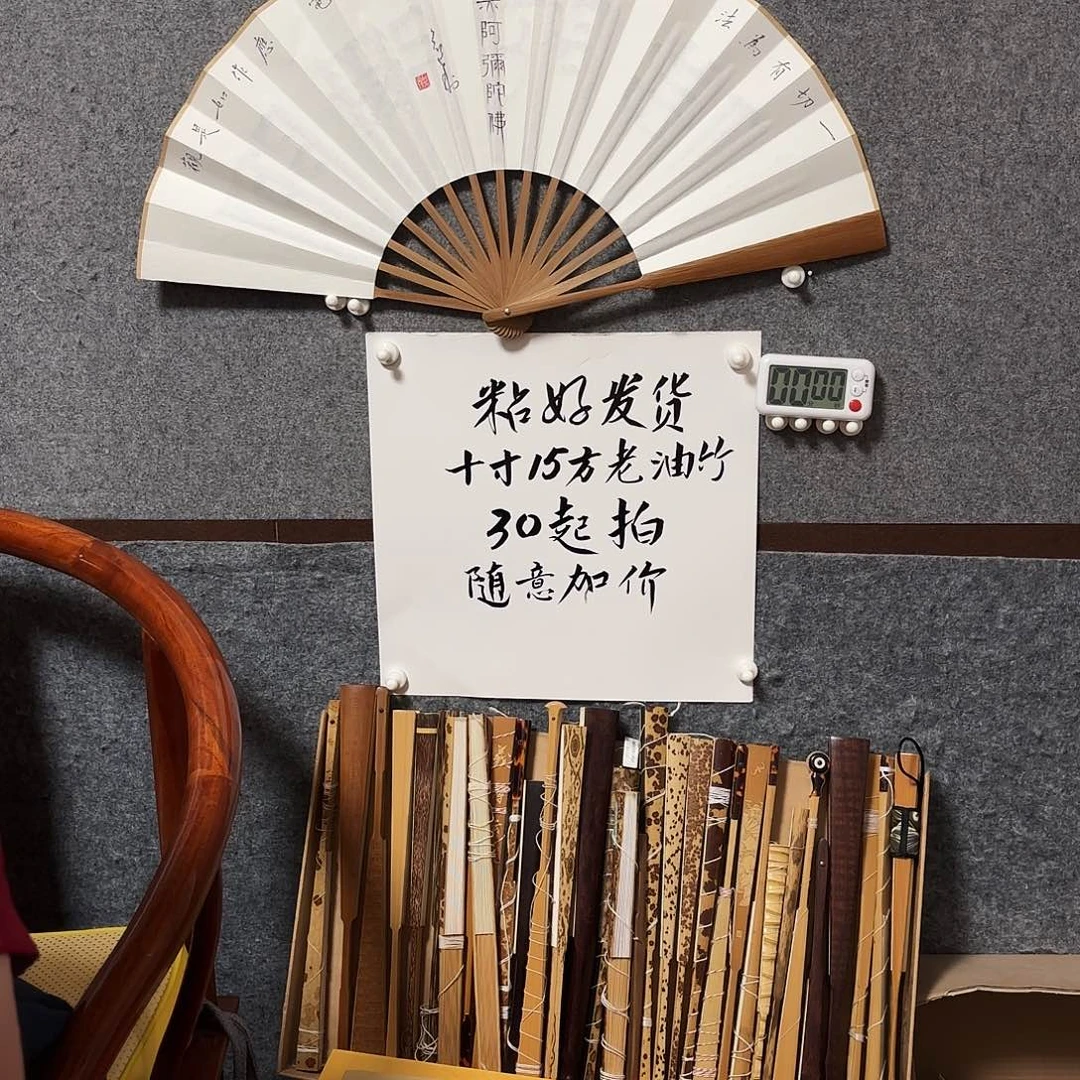 一切有為法
阿彌陀佛
應作如是觀
粘好发货
十寸15方老油竹
30起拍
随意加价
00:00